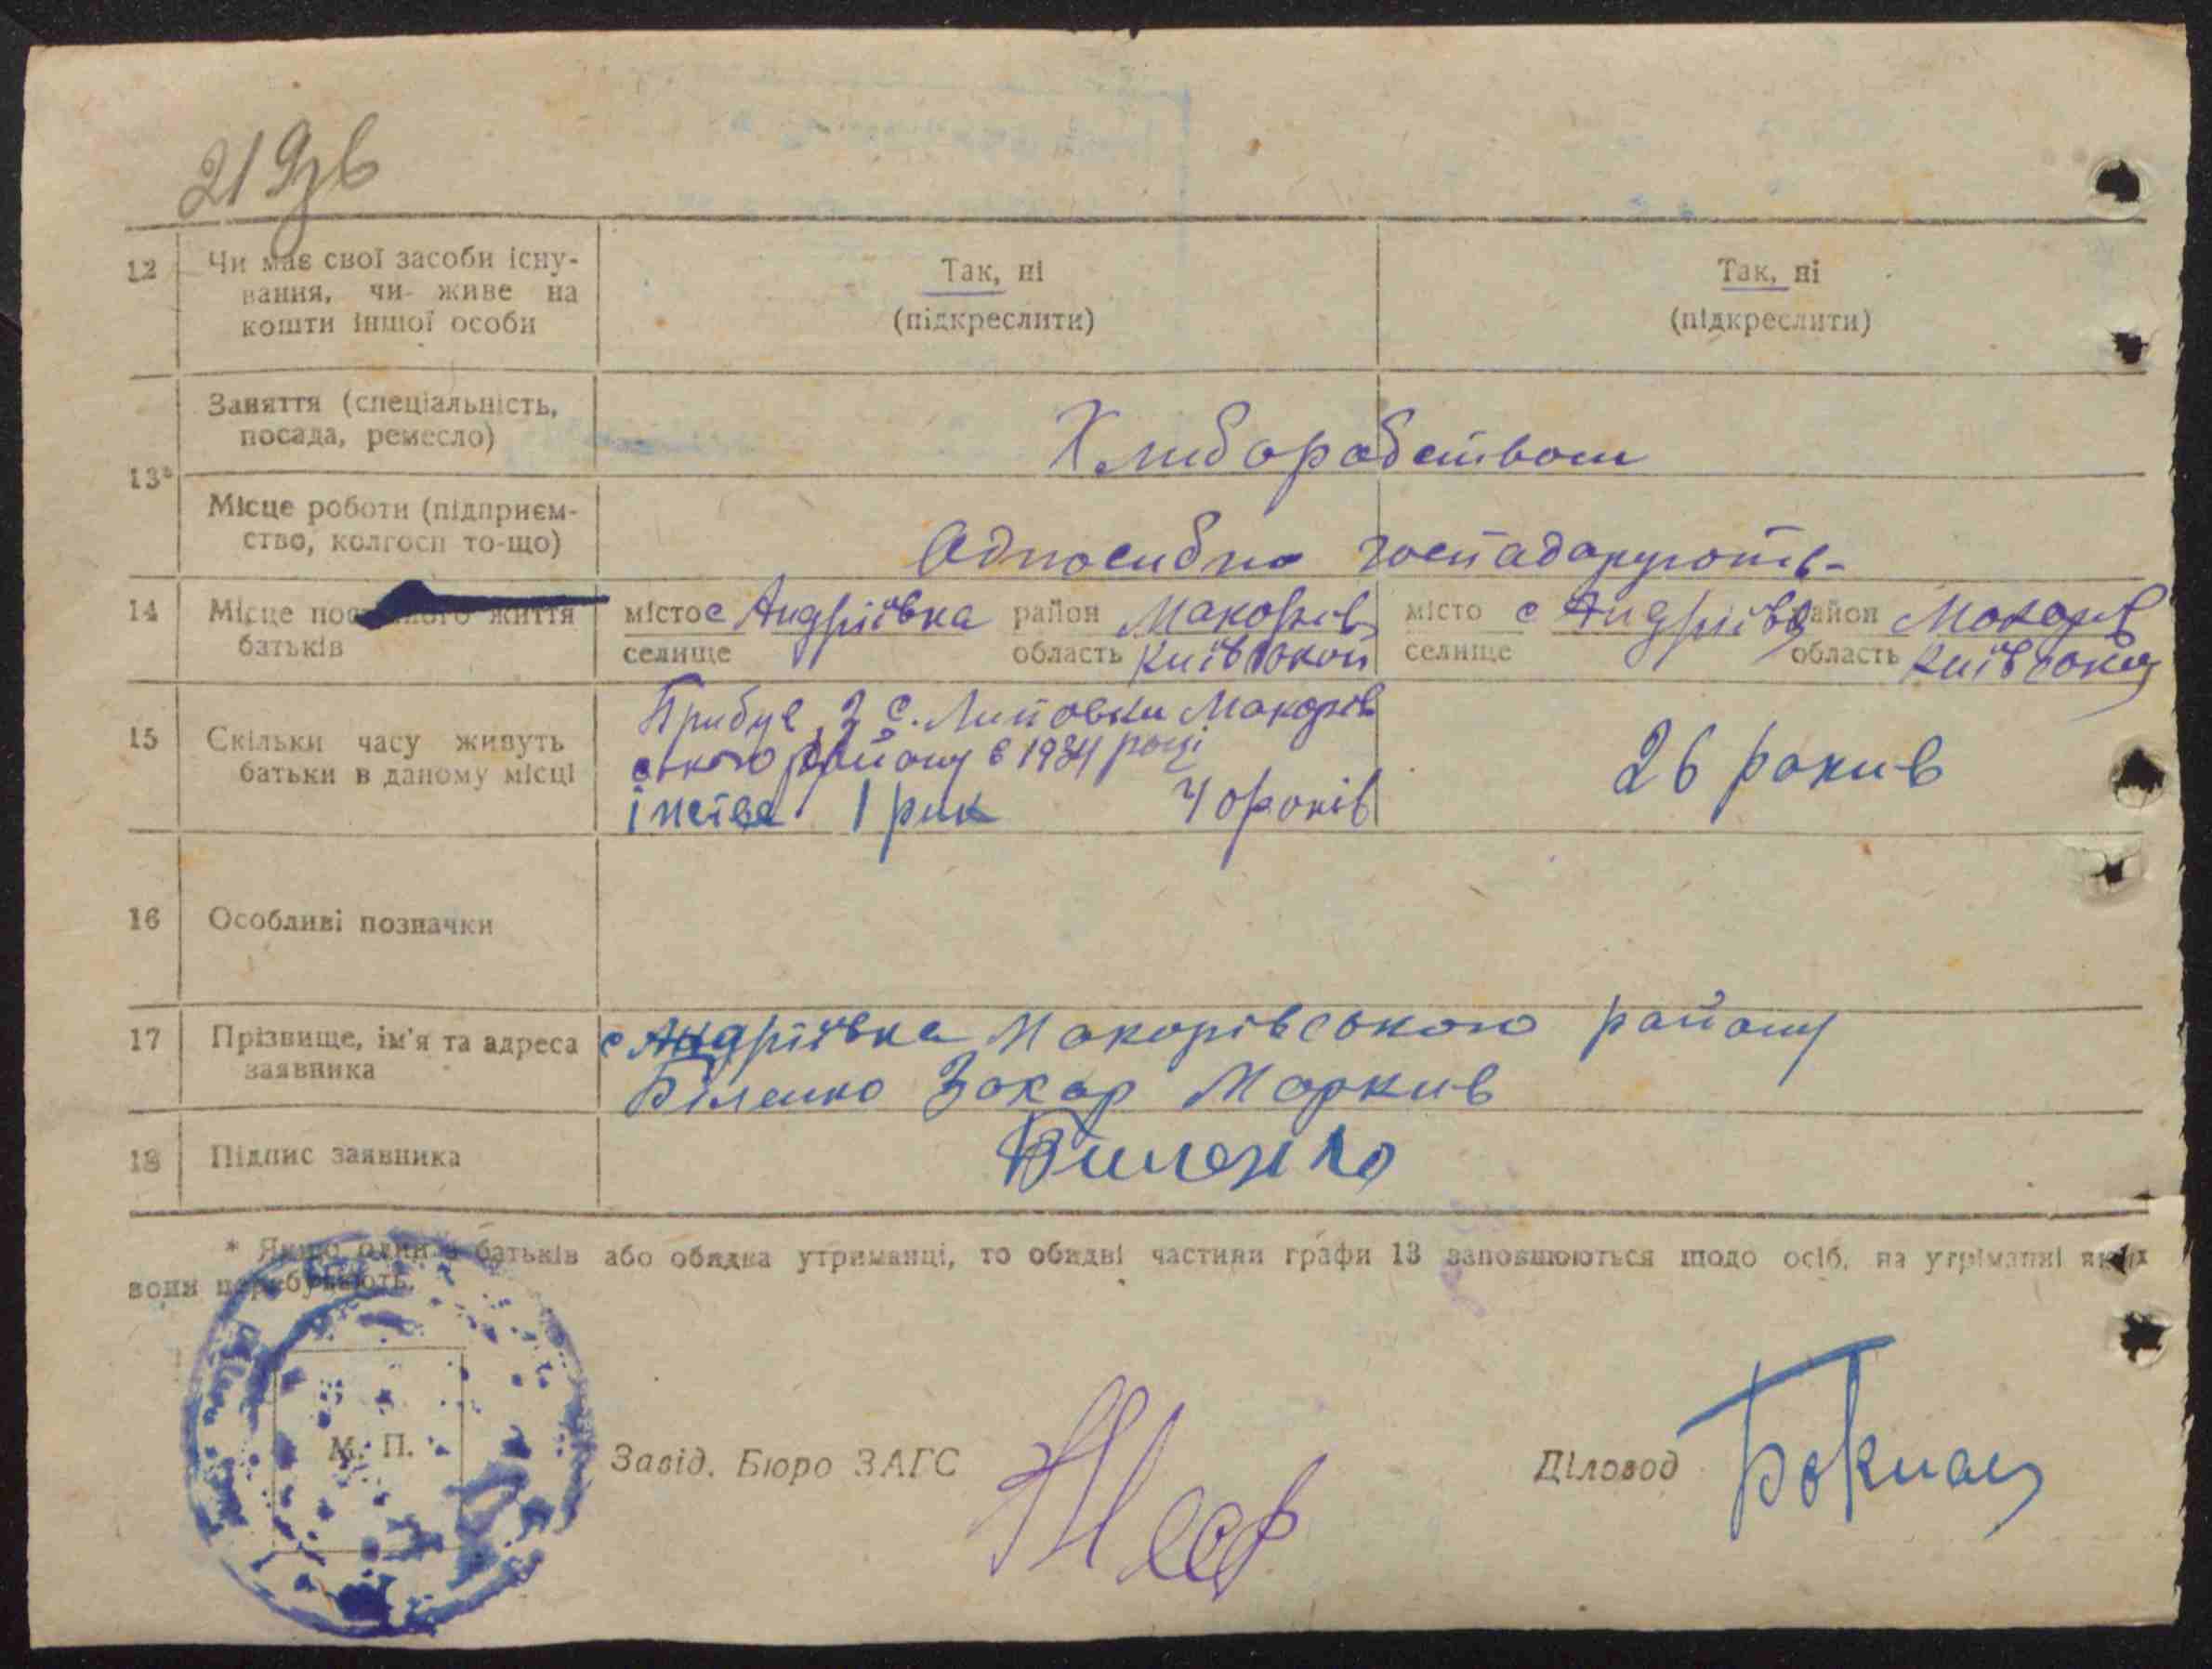 219зв
12 Чи має свої засоби існу-
вання, чи живе на
кошти іншої особи
Так, ні
(підкреслити)
Так, ні
(підкреслити)
13*
Заняття (спеціальність,
посада, ремесло)
Хлиборобством
Місце роботи (підприєм-
ство, колгосп то-що)
Одноосибно господарують-
14 Місце постійного життя
батьків
місто с Андріївка район Макорів
селище область Київської
місто с Андріївка район Макорів
селище область Київської
15 Скільки часу живуть
батьки в даному місці
Прибув З с. Липовки Макорів
ського району в 1934 році
1 рик 40 років
26 рокив
16 Особливі позначки
17 Прізвище, ім'я та адреса
заявника
с Андріївка Макорівського району
Біленко Захар Марків
18 Підпис заявника
Биленко
* Якщо один з батьків або обидва утриманці, то обидві частини графи 13 заповнюються щодо осіб, на утриманні яких
вони перебувають.
М. П.
Завід. Бюро ЗАГС
Діловод